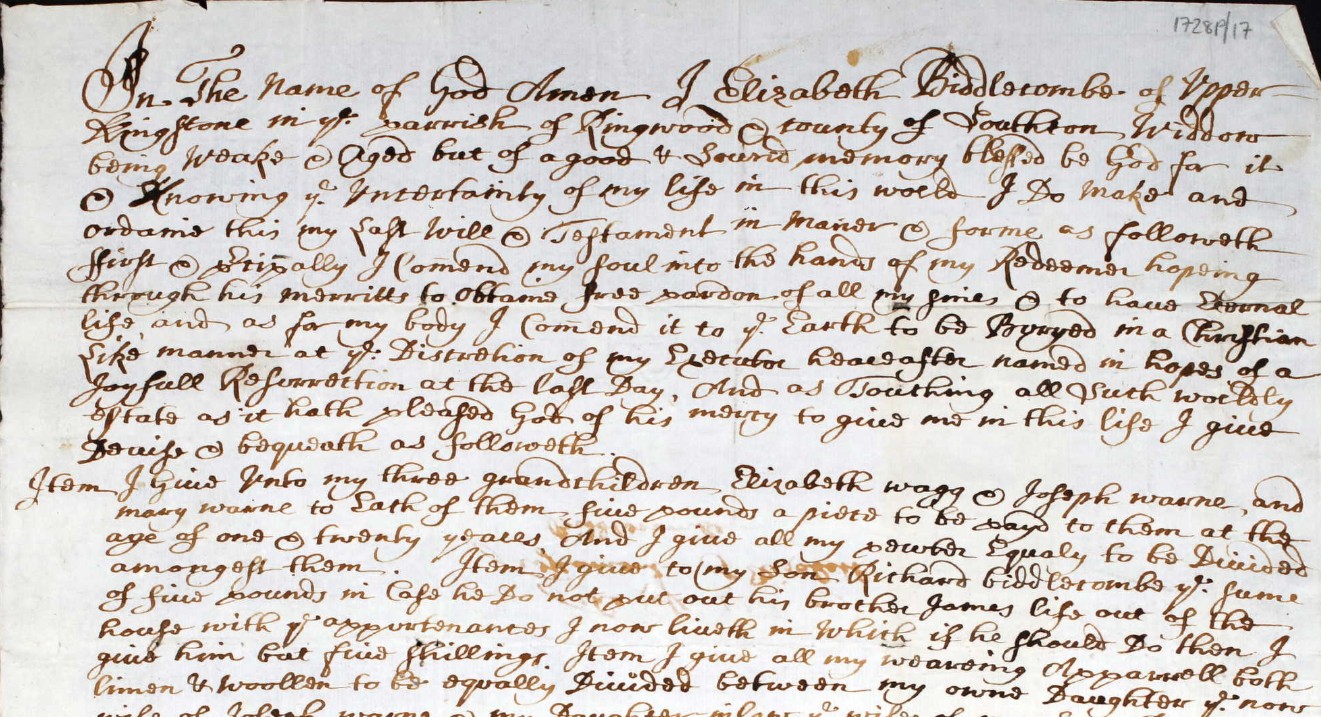 1728P/17
In The Name of God Amen I Elizabeth Biddlecombe of Upper
Kingstone in ye parrish of Ringwood & County of Southton Widdow
being Weake & Aged but of a good & Sound memory blessed be God for it
& Knowing ye Uncertainty of my life in this world I Do Make and
ordaine this my Last Will & Testament in Maner & forme as followeth
ffirst & Prcipally I Comend my soul into the hands of my Redeemer hopeing
through his merritts to obtaine free pardon of all my sines & to have Eternal
life and as for my body I Comend it to ye Earth to be Buryed in a Christian
Like manner at ye Discretion of my Executor heareafter named in hopes of a
Joyfull Resurrection at the last Day, And as Touching all Such worldly
estate as it hath pleased God of his mercy to give me in this life I give
Devise & bequeath as followeth.
Item I Give Unto my three grandchildren Elizabeth wagg & Joseph warne and
mary warne to Each of them five pounds a piece to be payd to them at the
age of one & twenty yeares And I give all my pewter Equaly to be Divided
amongest them. Item I give to my Son Richard biddlecombe ye sume
of five pounds in Case he Do not put out his brother James life out of the
house with ye appurtenances I now liveth in Which if he should Do then I
give him but five shillings. Item I give all my weareing Apparrell both
linnen & woollen to be equally Divided between my owne Daughter ye now
wife of Joseph warne & my Daughter inlaw ye wife of